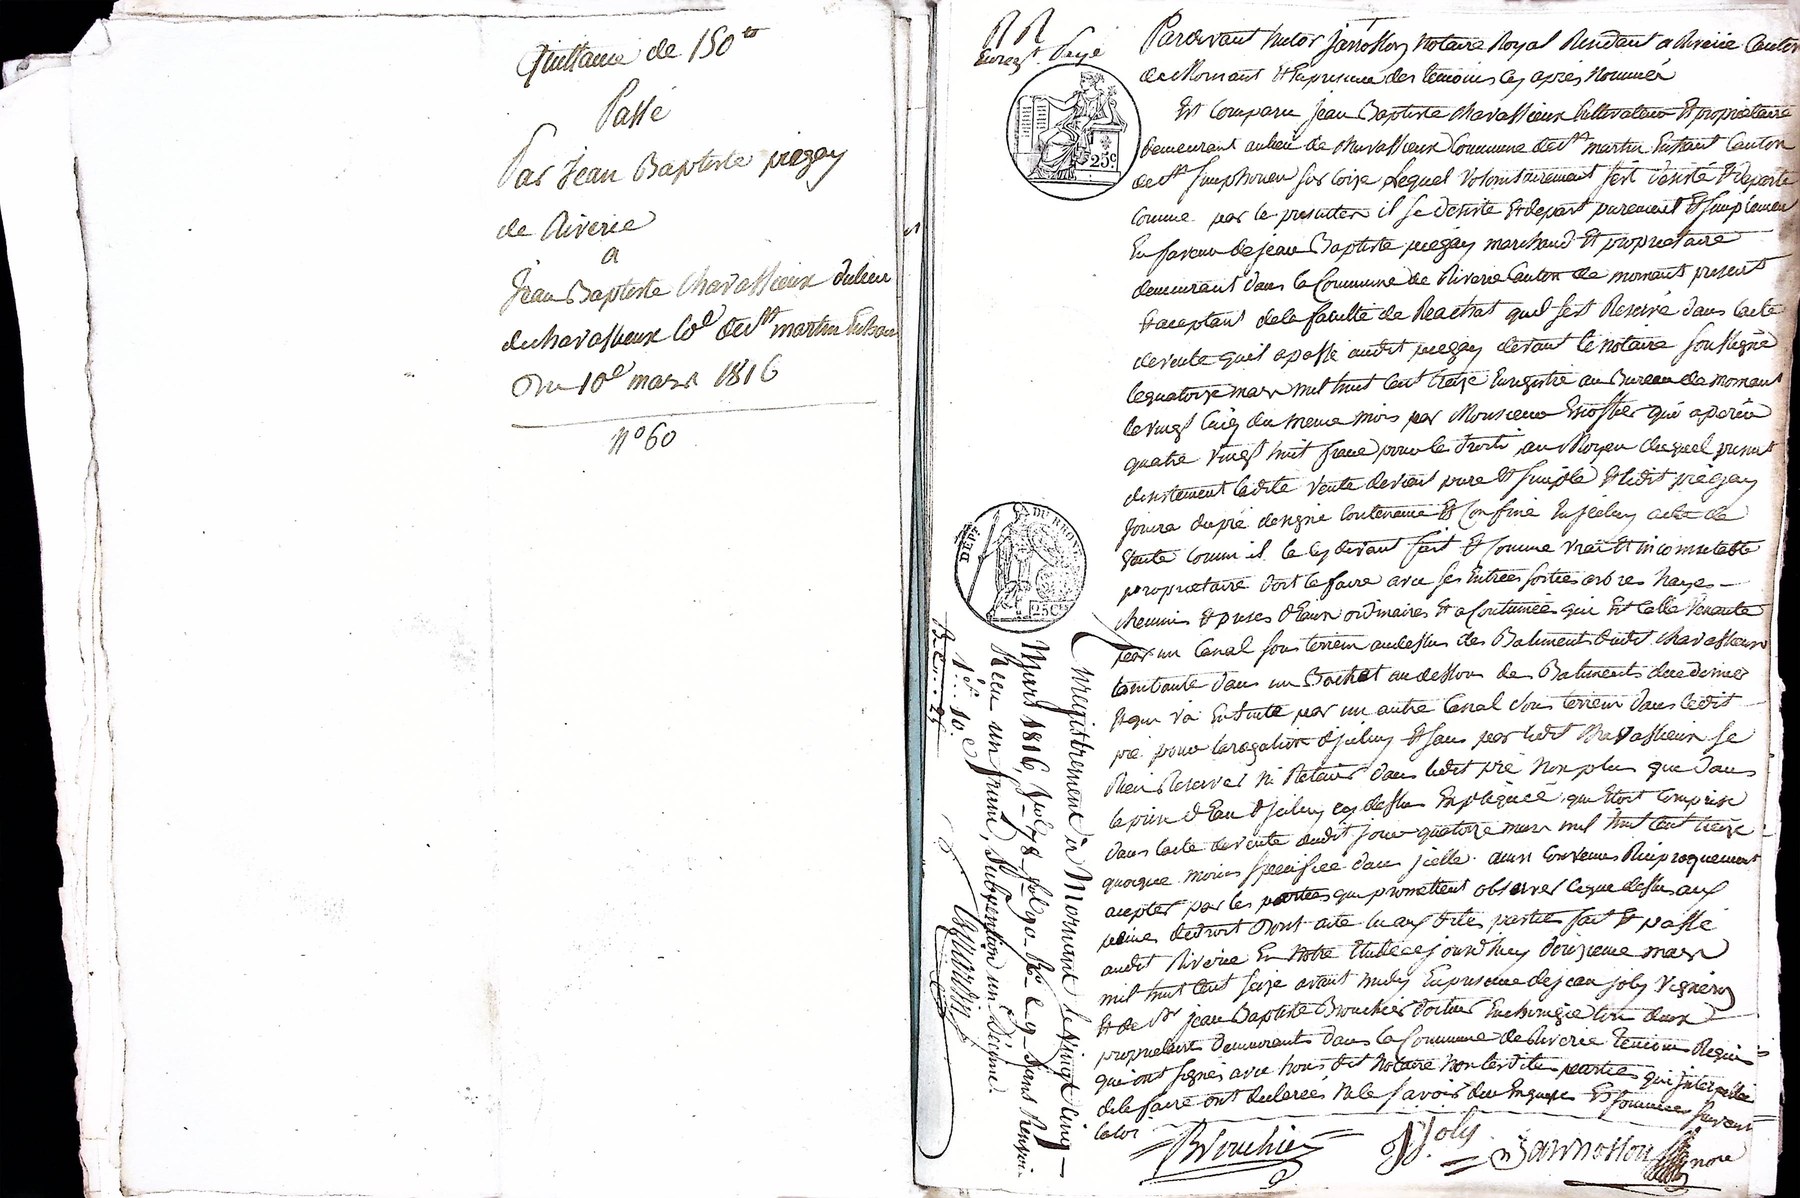 Quittance de 150 tt
Passé
Par Jean Baptiste piegay
de Riverie
a
Jean Baptiste Chavassieux dulieu
de chavassieux Co^e de st martin
Du 10^e mars 1816
n° 60
Enregt. Payé
25 c.
DEPT. DU RHONE
25 Ces
Pardevant Jannosson Notaire Royal Resident a Riverie Canton
de Mornant Et En presence des temoins cy après Nommés
Est Comparu jean Baptiste chavassieux Cultivateur Et propriétaire
demeurant au lieu de chavassieux Commune de st martin Canton
de st simphorien sur Coize Lequel volontairement s'est désisté Et départi
Comme par le présent il se désiste Et départ purement Et simplement
En faveur de jean Baptiste piegay marchand Et proprietaire
demeurant dans la Commune de Riverie Canton de mornant present
Et aceptant de la faculté de Reachat quil s'est Reservé dans l'acte
de vente quil a passé audit piegay devant le notaire soussigné
le quatorze mars mil huit Cent treize Enregistré au Bureau de mornant
le vingt Cinq du meme mois par Monsieur qui a perçu
quatre vingt huit franc pour le droit, au Moyen duquel present
desistement ladite vente devient pure Et simple Et ledit piegay
jouira du pré designé Contenance Et Confiné En jceluy acte de
vente Comme il la cy devant fait Et Comme vrai Et incomutable
proprietaire doit le faire avec ses Entrées sorties arbres hayes
chemins Et prises d'Eaux ordinaires Et acoutumées qui Est Celle venante
par un Canal souterrein audessus des Batiments dudit chavassieux
tombante dans un Bachat au dessous de Batiments du dernier
Et qui va Ensuite par un autre Canal souterrein dans ledit
pré pour larogation d'jceluy Et sans par ledit chavassieux se
Rien Reserver ni Retenir dans ledit pré Non plus que dans
la prise d'Eau d'jceluy cy dessus Expliquée qui Etoit Comprise
dans lacte de vente dudit jour quatorze mars mil huit Cent treize
quoique moins specifiée dans jcelle. ainsi Convenu Réciproquement
acepter par les parties qui promettent observer Ceque dessus aux
peines de droit Dont acte lu aux dites parties fait Et passé
audit Riverie En notre Etude cejourdhuy mars
mil huit Cent seize avant midy En presence de jean joly vigneron
Et de sr jean Baptiste Brouchier tous deux
propriétaires Demeurants dans la Commune de Riverie temoins Requis
qui ont signés avec nous dit Notaire Non lesdites parties qui
de le faire ont declarées Ne le savoir de Enquises Et sommées suivant
la loi
Brouchier J. Joly Jannosson nore
Enregistrement à Mornant le vingt cinq
Mars 1816, fol. 78 90 Sans Renvoi.
Reçu un franc, Subvention un Décime.
1 f. 10 c